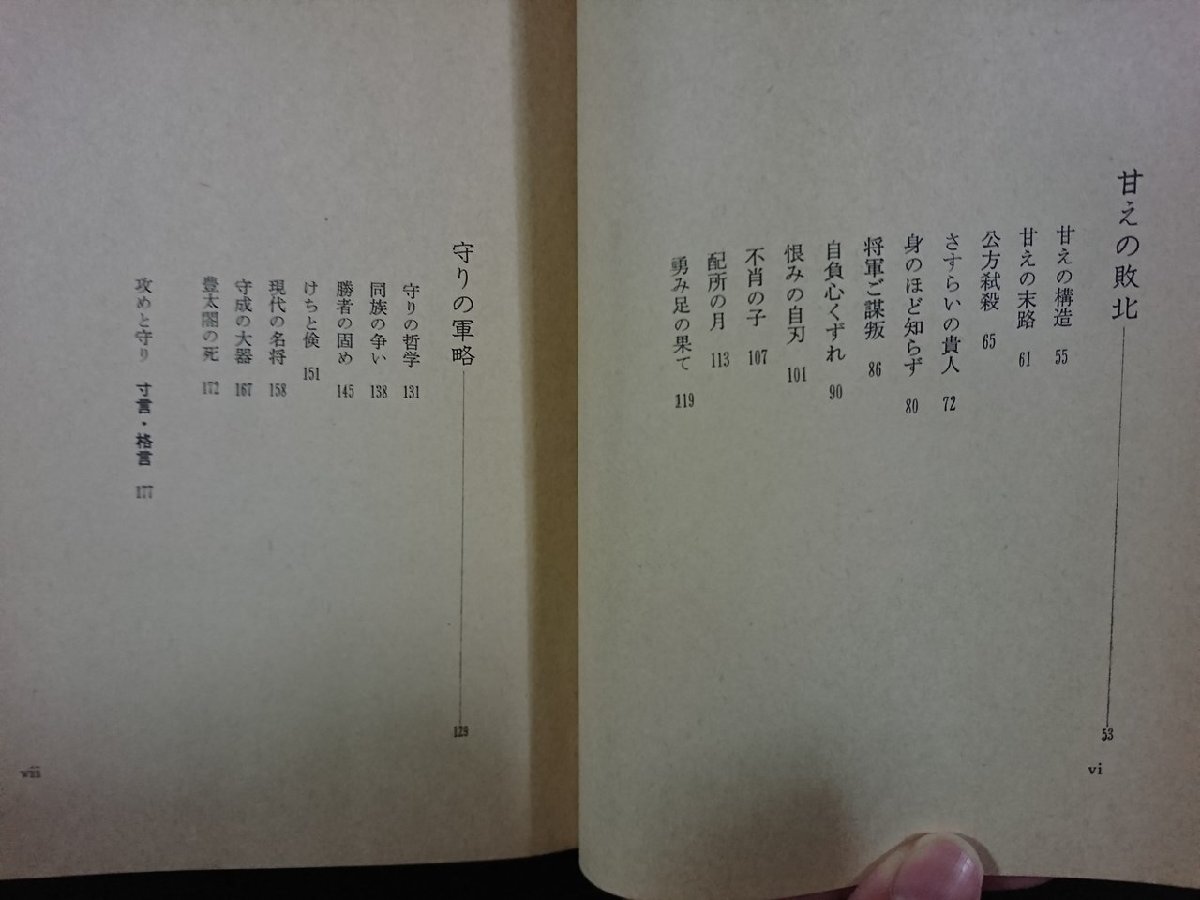 甘えの敗北 53
甘えの構造 55
甘えの末路 61
公方弑殺 65
さすらいの貴人 72
身のほど知らず 80
将軍ご謀叛 86
自負心くずれ 90
恨みの自刃 101
不肖の子 107
配所の月 113
勇み足の果て 119
vi
守りの軍略 129
守りの哲学 131
同族の争い 138
勝者の固め 145
けちと倹 151
現代の名将 158
守成の大器 167
豊太閤の死 172
攻めと守り 寸言・格言 177
viii